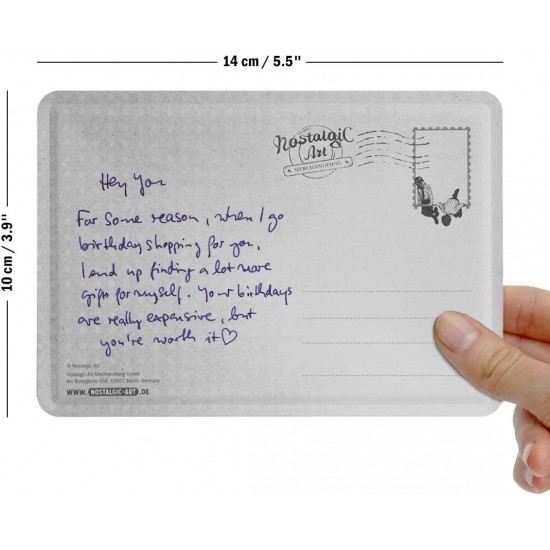 14 cm / 5.5"
10 cm / 3.9"
Nostalgic
Art
MERCHANDISING
Hey You
For some reason, when I go
birthday shopping for you,
I end up finding a lot more
gifts for myself. Your birthdays
are really expensive, but
you're worth it♡
© Nostalgic-Art
Nostalgic-Art Merchandising GmbH
Berlin, Germany
WWW.NOSTALGIC-ART.DE